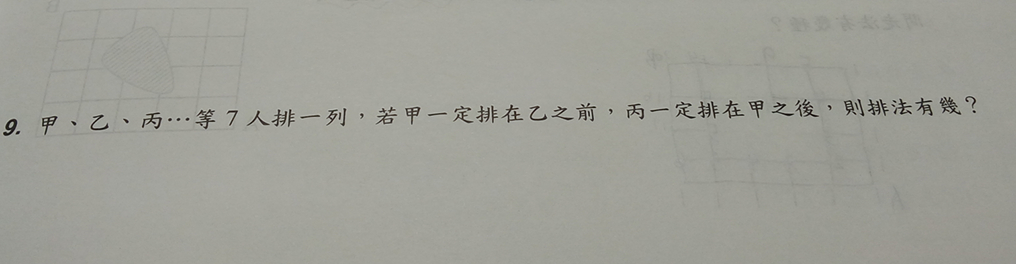 9. 甲、乙、丙…等 7 人排一列，若甲一定排在乙之前，丙一定排在甲之後，則排法有幾？